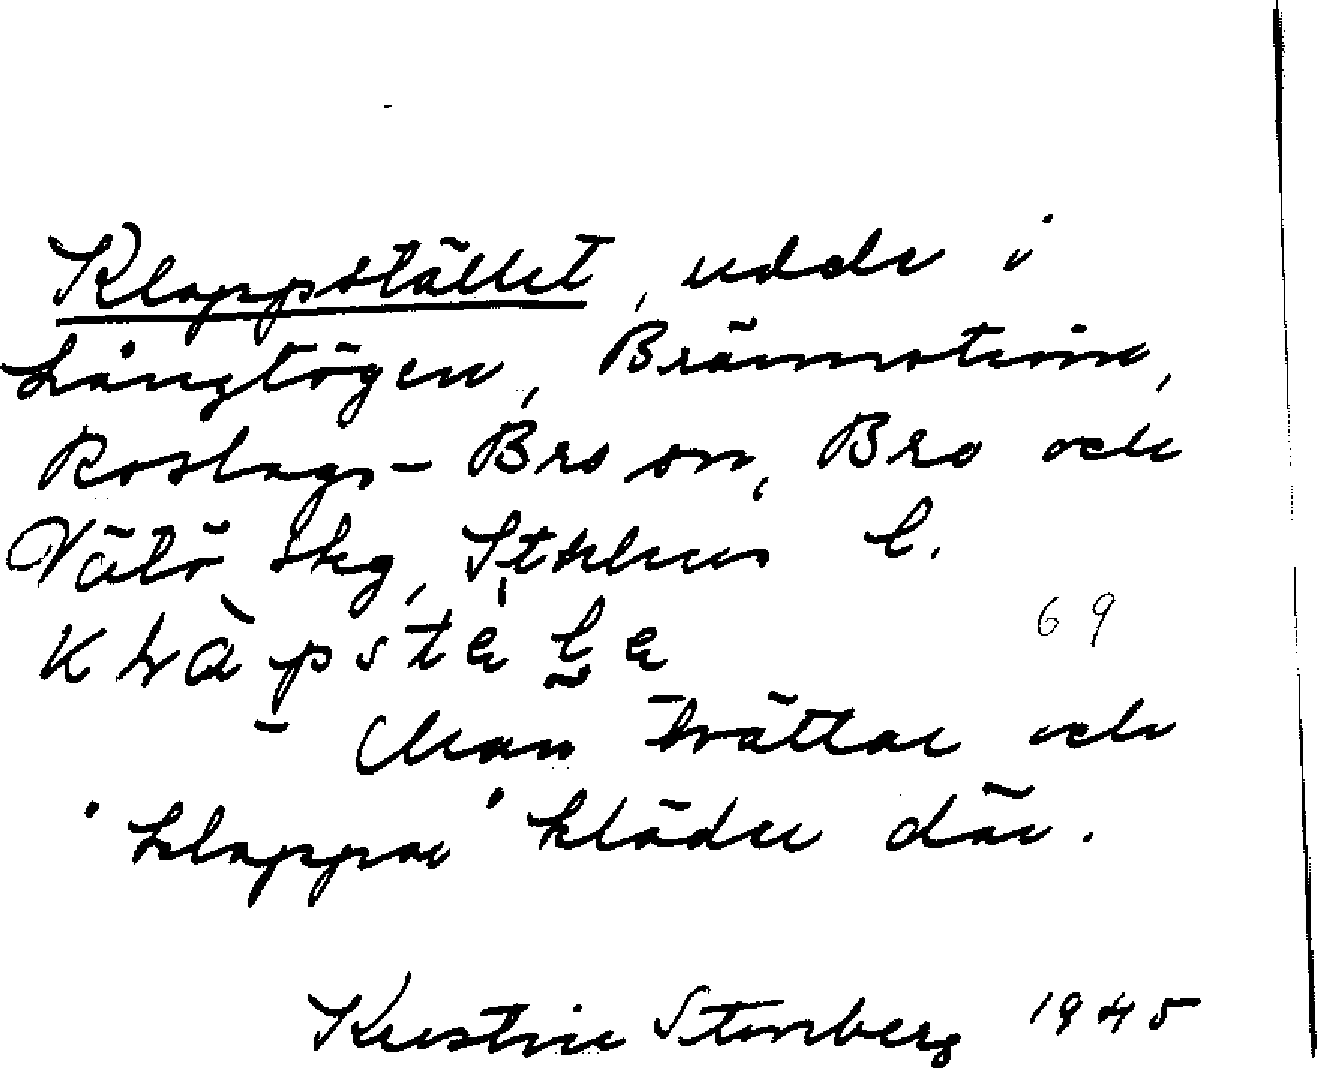 Klappstället, udde i
Långtögen, Brännotrom,
Roslags-Bro sn, Bro och
Vätö skg, Sthlms l.
man tvättar och
"klappar" kläder där.
69
Kerstin Stenberg 1945